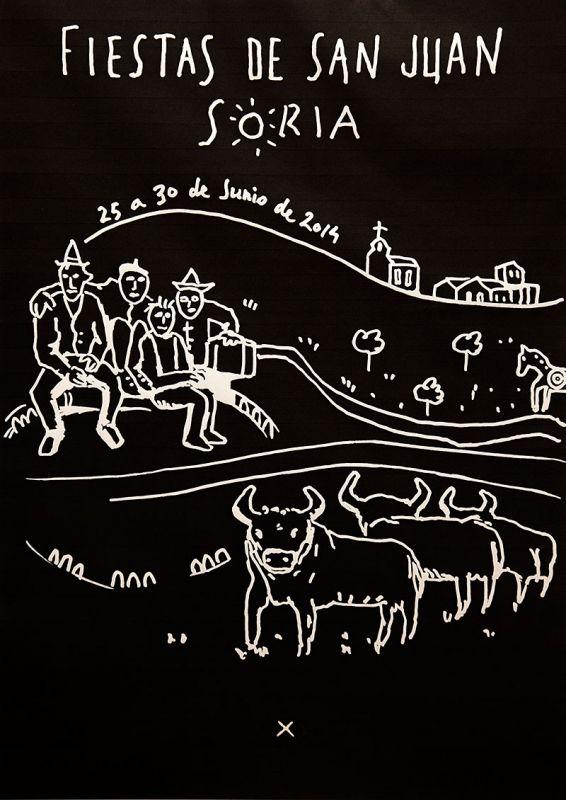 FIESTAS DE SAN JUAN
SORIA
25 a 30 de Junio de 2014